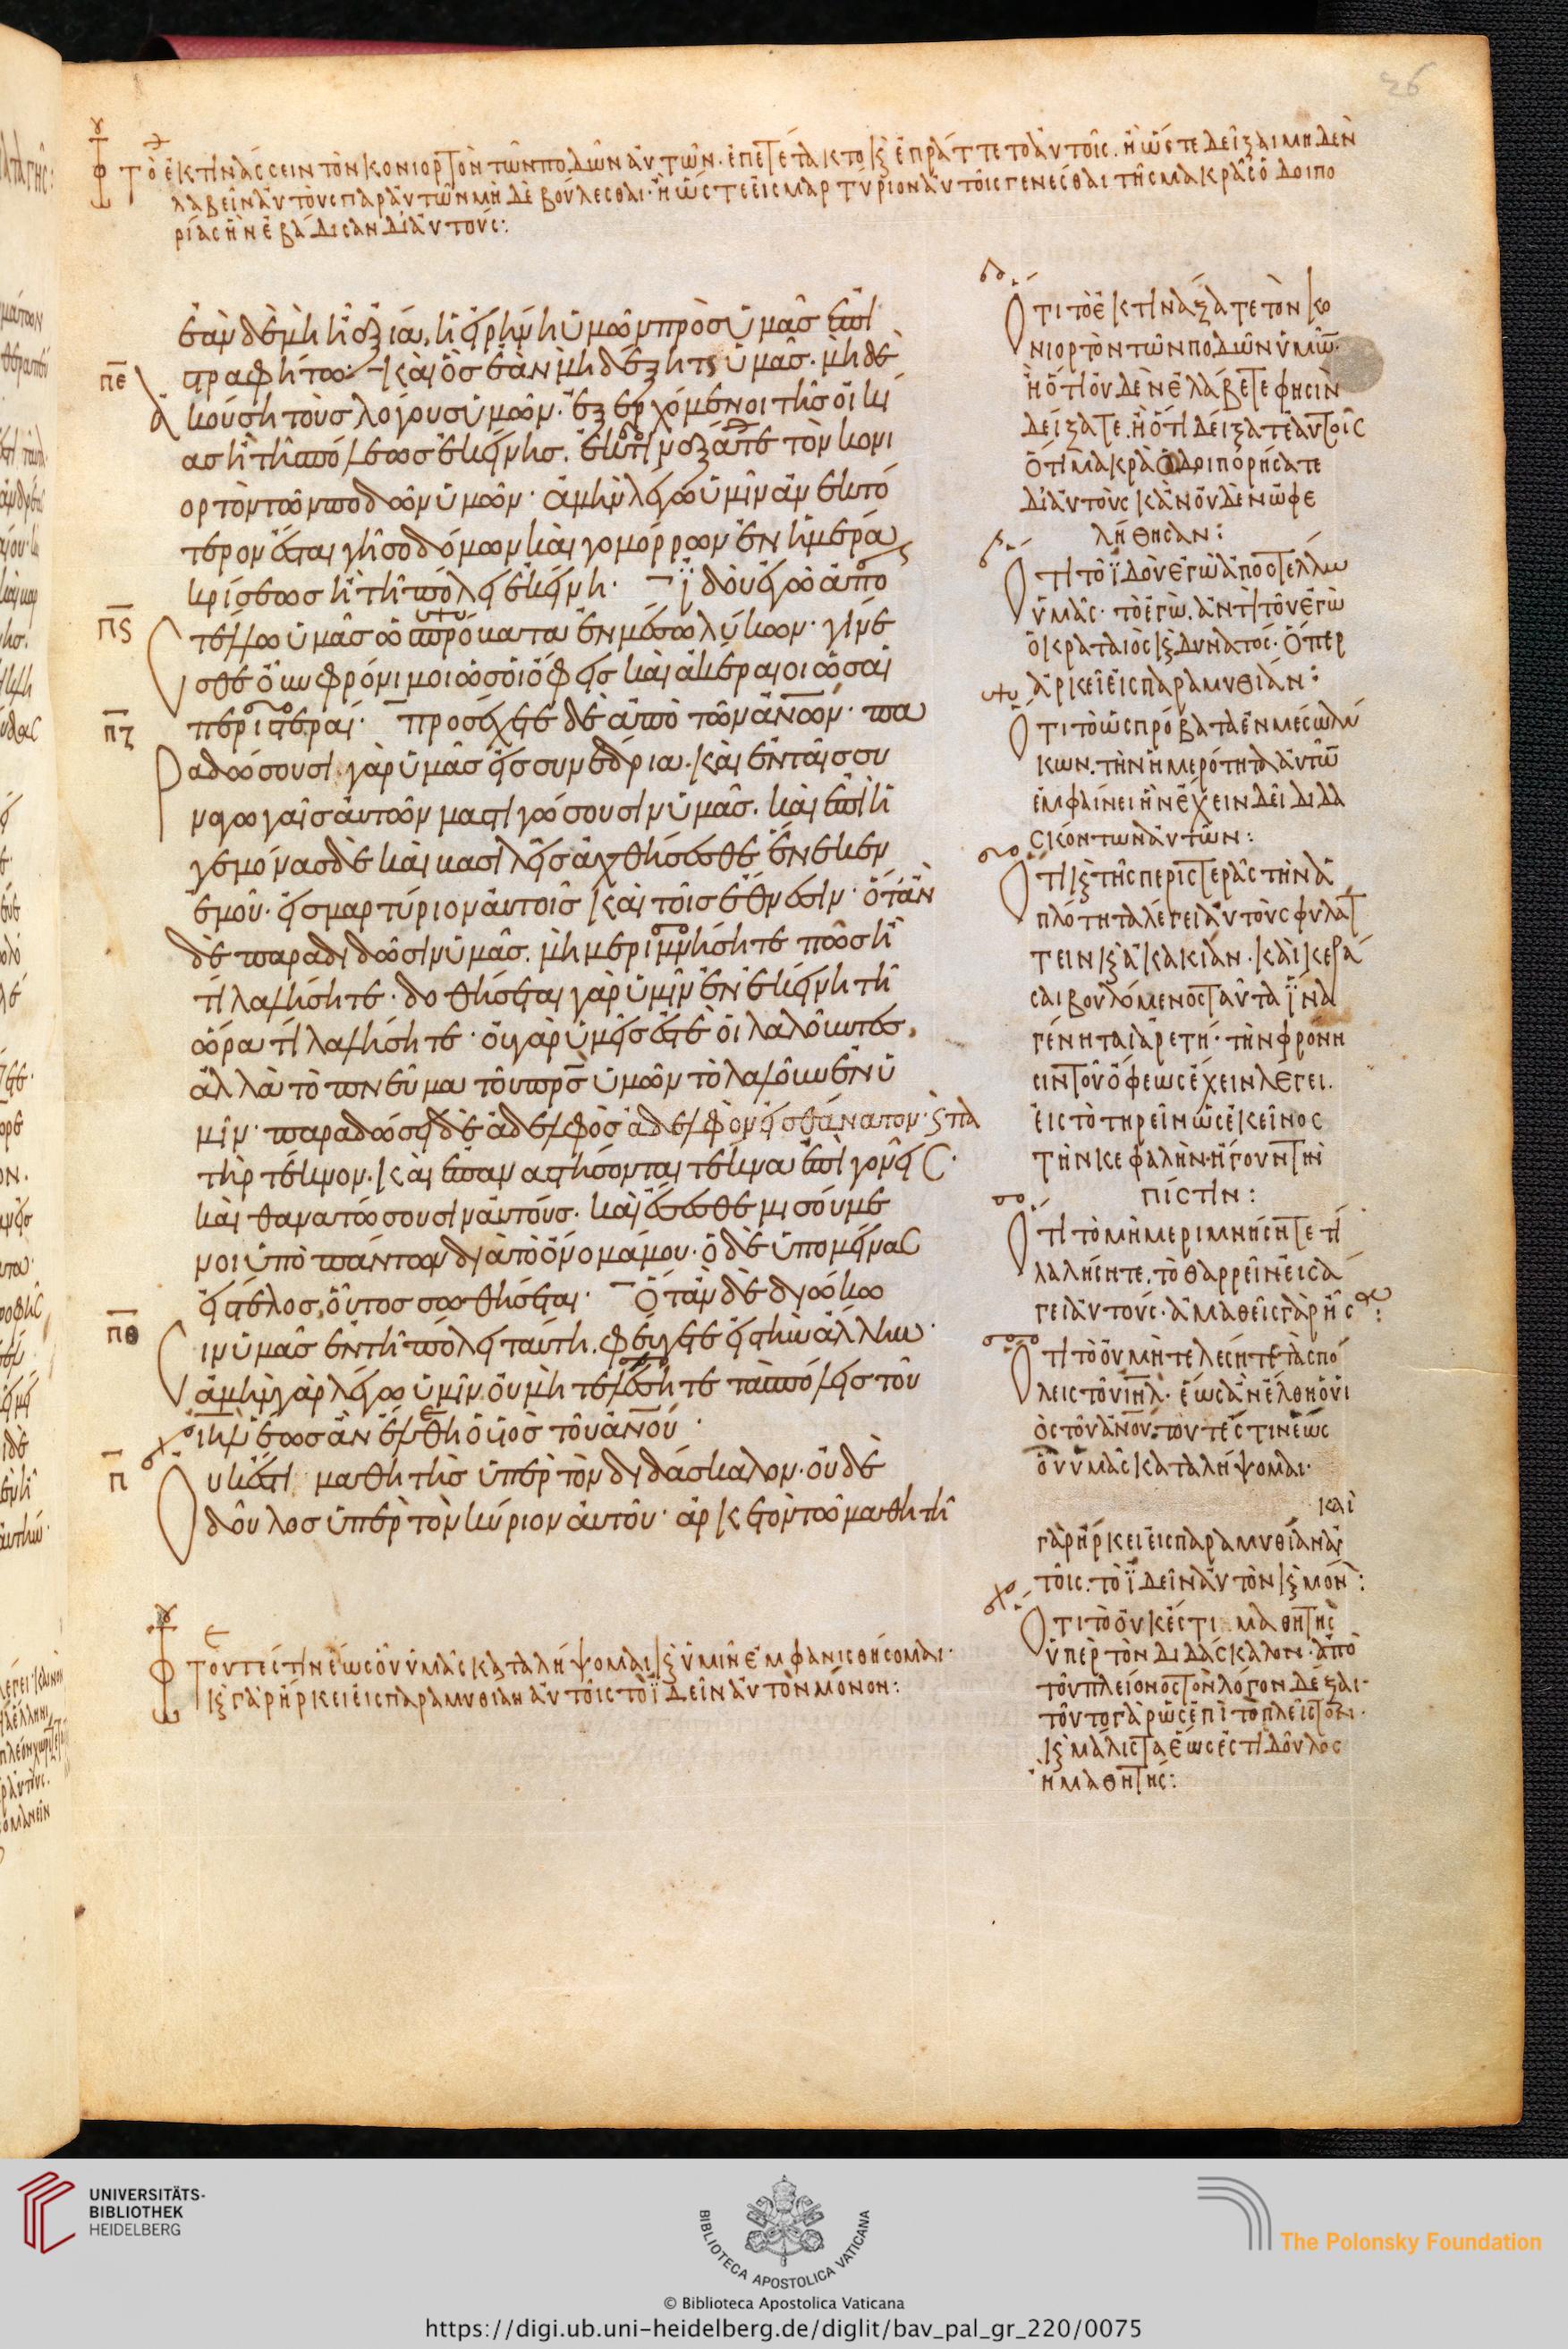 36
τὸ ἐκτινάσσειν τὸν κονιορτὸν τῶν ποδῶν αὐτῶν. ἐπετέτακτο κ ἐπράττετο αὐτοῖς. ἢ ὥστε δεῖξαι μηδὲν
λαβεῖν αὐτοὺς παρ αὐτῶν μὴ δὲ βούλεσθαι· ἢ ὥστε εἰς μαρτύριον αὐτοῖς γενέσθαι τῆς μακρᾶς ὁδοιπο
ρίας ἣν ἐβάδισαν δι αὐτούς:
ἐὰν δὲ μὴ ἦ ἀξία, ἡ εἰρήνη ὑμῶν πρὸς ὑμᾶς ἐπι
πε στραφήτω· καὶ ὃς ἐὰν μὴ δέξηται ὑμᾶς. μὴ δὲ
ἀκούσῃ τοὺς λόγους ὑμῶν. ἐξερχόμενοι τῆς οἰκί
ας ἢ τῆς πόλεως ἐκείνης. ἐκτινάξατε τὸν κονι
ορτὸν τῶν ποδῶν ὑμῶν· ἀμὴν λέγω ὑμῖν ἀνεκτό
τερον ἔσται γῆ σοδόμων καὶ γομόρρων ἐν ἡμέρα
κρίσεως ἢ τῆ πόλει ἐκείνη· ἰδοὺ ἐγὼ ἀπο
πϛ στέλλω ὑμᾶς ὡς πρόβατα ἐν μέσω λύκων· γίνε
σθε οὖν φρόνιμοι ὡς οἱ ὄφεις καὶ ἀκέραιοι ὡς αἱ
πζ περιστεραί· προσέχετε δὲ ἀπὸ τῶν ἀνων· πα
ραδώσουσι γὰρ ὑμᾶς εἰς συνέδρια. καὶ ἐν ταῖς συ
ναγωγαῖς αὐτῶν μαστιγώσουσιν ὑμᾶς. καὶ ἐπὶ ἡ
γεμόνας δὲ καὶ βασιλεῖς ἀχθήσεσθε ἕνεκεν
ἐμοῦ· εἰς μαρτύριον αὐτοῖς καὶ τοῖς ἔθνεσιν· ὅταν
δὲ παραδιδῶσιν ὑμᾶς. μὴ μεριμνήσητε πῶς ἢ
τί λαλήσητε· δοθήσεται γὰρ ὑμῖν ἐν ἐκείνη τῆ
ὥρα τί λαλήσητε· οὐ γὰρ ὑμεῖς ἐστὲ οἱ λαλοῦντες,
ἀλλὰ τὸ πνεῦμα τοῦ πρς ὑμῶν τὸ λαλοῦν ἐν ὑ
μῖν· παραδώσει δὲ ἀδελφὸς ἀδελφὸν εἰς θάνατον· κ πα
τὴρ τέκνον. καὶ ἐπαναστήσονται τέκνα ἐπὶ γονεῖς·
καὶ θανατώσουσιν αὐτούς· καὶ ἔσεσθε μισούμε
νοι ὑπὸ πάντων διὰ τὸ ὄνομά μου· ὁ δὲ ὑπομείνας
εἰς τέλος, οὗτος σωθήσεται· Ὅταν δὲ διώκω
πθ σιν ὑμᾶς ἐν τῆ πόλει ταύτη. φεύγετε εἰς τὴν ἄλλην·
ἀμὴν γὰρ λέγω ὑμῖν οὐ μὴ τελέσητε τὰς πόλεις τοῦ
ιηλ ἕως ἂν ἔλθη ὁ υἱὸς τοῦ ἀνου·
π Οὐκ ἔστι μαθητὴς ὑπὲρ τὸν διδάσκαλον· οὐδὲ
δοῦλος ὑπὲρ τὸν κύριον αὐτοῦ· ἀρκετὸν τῶ μαθητῆ
τουτέστιν ἕως οὗ ὑμᾶς καταλήψομαι κ ὑμῖν ἐμφανισθήσομαι·
κ γὰρ ἤρκει εἰς παραμυθίαν αὐτοῖς τὸ ἰδεῖν αὐτὸν μόνον:
Ὅτι τὸ ἐκτινάξατε τὸν κο
νιορτὸν τῶν ποδῶν ὑμῶν·
ἢ ὅτι οὐδὲν ἐλάβετε φησὶν
δείξατε. ἢ ὅτι δείξατε αὐτοῖς
ὅτι μακρὰ ὁδοιπορήσατε
δι αὐτοὺς κἂν οὐδὲν ὠφε
λήθησαν:
Ὅτι τὸ ἰδοὺ ἐγὼ ἀποστέλλω
ὑμᾶς· τὸ ἐγὼ. ἀντὶ τοῦ ἐγὼ
ὁ κραταιὸς κ δυνατός· ὅπερ
ἀρκεῖ εἰς παραμυθίαν:
Ὅτι τὸ ὡς πρόβατα ἐν μέσω λύ
κων. τὴν ἡμερότητα αὐτῶν
ἐμφαίνει ἣν ἔχειν δεῖ διδα
σκόντων αὐτῶν:
Ὅτι κ τῆς περιστερᾶς τὴν ἁ
πλότητα λέγει αὐτοὺς φυλάτ
τειν κ ἀκακίαν. καὶ κερά
σαι βουλόμενος ταῦτα ἵνα
γένηται ἀρετή· τὴν φρόνη
σιν τοῦ ὄφεως ἔχειν λέγει.
εἰς τὸ τηρεῖν ὡς ἐκεῖνος
τὴν κεφαλὴν· ἤγουν τὴν
πίστιν:
Ὅτι τὸ μὴ μεριμνήσητε τί
λαλήσητε. τὸ θαρρεῖν εἰσά
γει αὐτούς. ἀμαθεῖς γὰρ ἦσ:
Ὅτι τὸ οὐ μὴ τελέσητε τὰς πό
λεις τοῦ ιηλ· ἕως ἂν ἔλθη ὁ υἱ
ὸς τοῦ ἀνου· τουτέστιν ἕως
οὗ ὑμᾶς καταλήψομαι·
καὶ
γὰρ ἤρκει εἰς παραμυθίαν αὐ
τοῖς. τὸ ἰδεῖν αὐτὸν κ μόν:
Ὅτι τὸ οὐκ ἔστι μαθητὴς
ὑπὲρ τὸν διδάσκαλον· ἀπὸ
τοῦ πλείονος τὸν λόγον δέξαι·
τοῦτο γὰρ ὡς ἐπὶ τὸ πλεῖστον·
κ μάλιστα ἕως ἐστὶ δοῦλος
ἢ μαθητής:
UNIVERSITÄTS-
BIBLIOTHEK
HEIDELBERG
BIBLIOTECA APOSTOLICA VATICANA
The Polonsky Foundation
© Biblioteca Apostolica Vaticana
https://digi.ub.uni-heidelberg.de/diglit/bav_pal_gr_220/0075